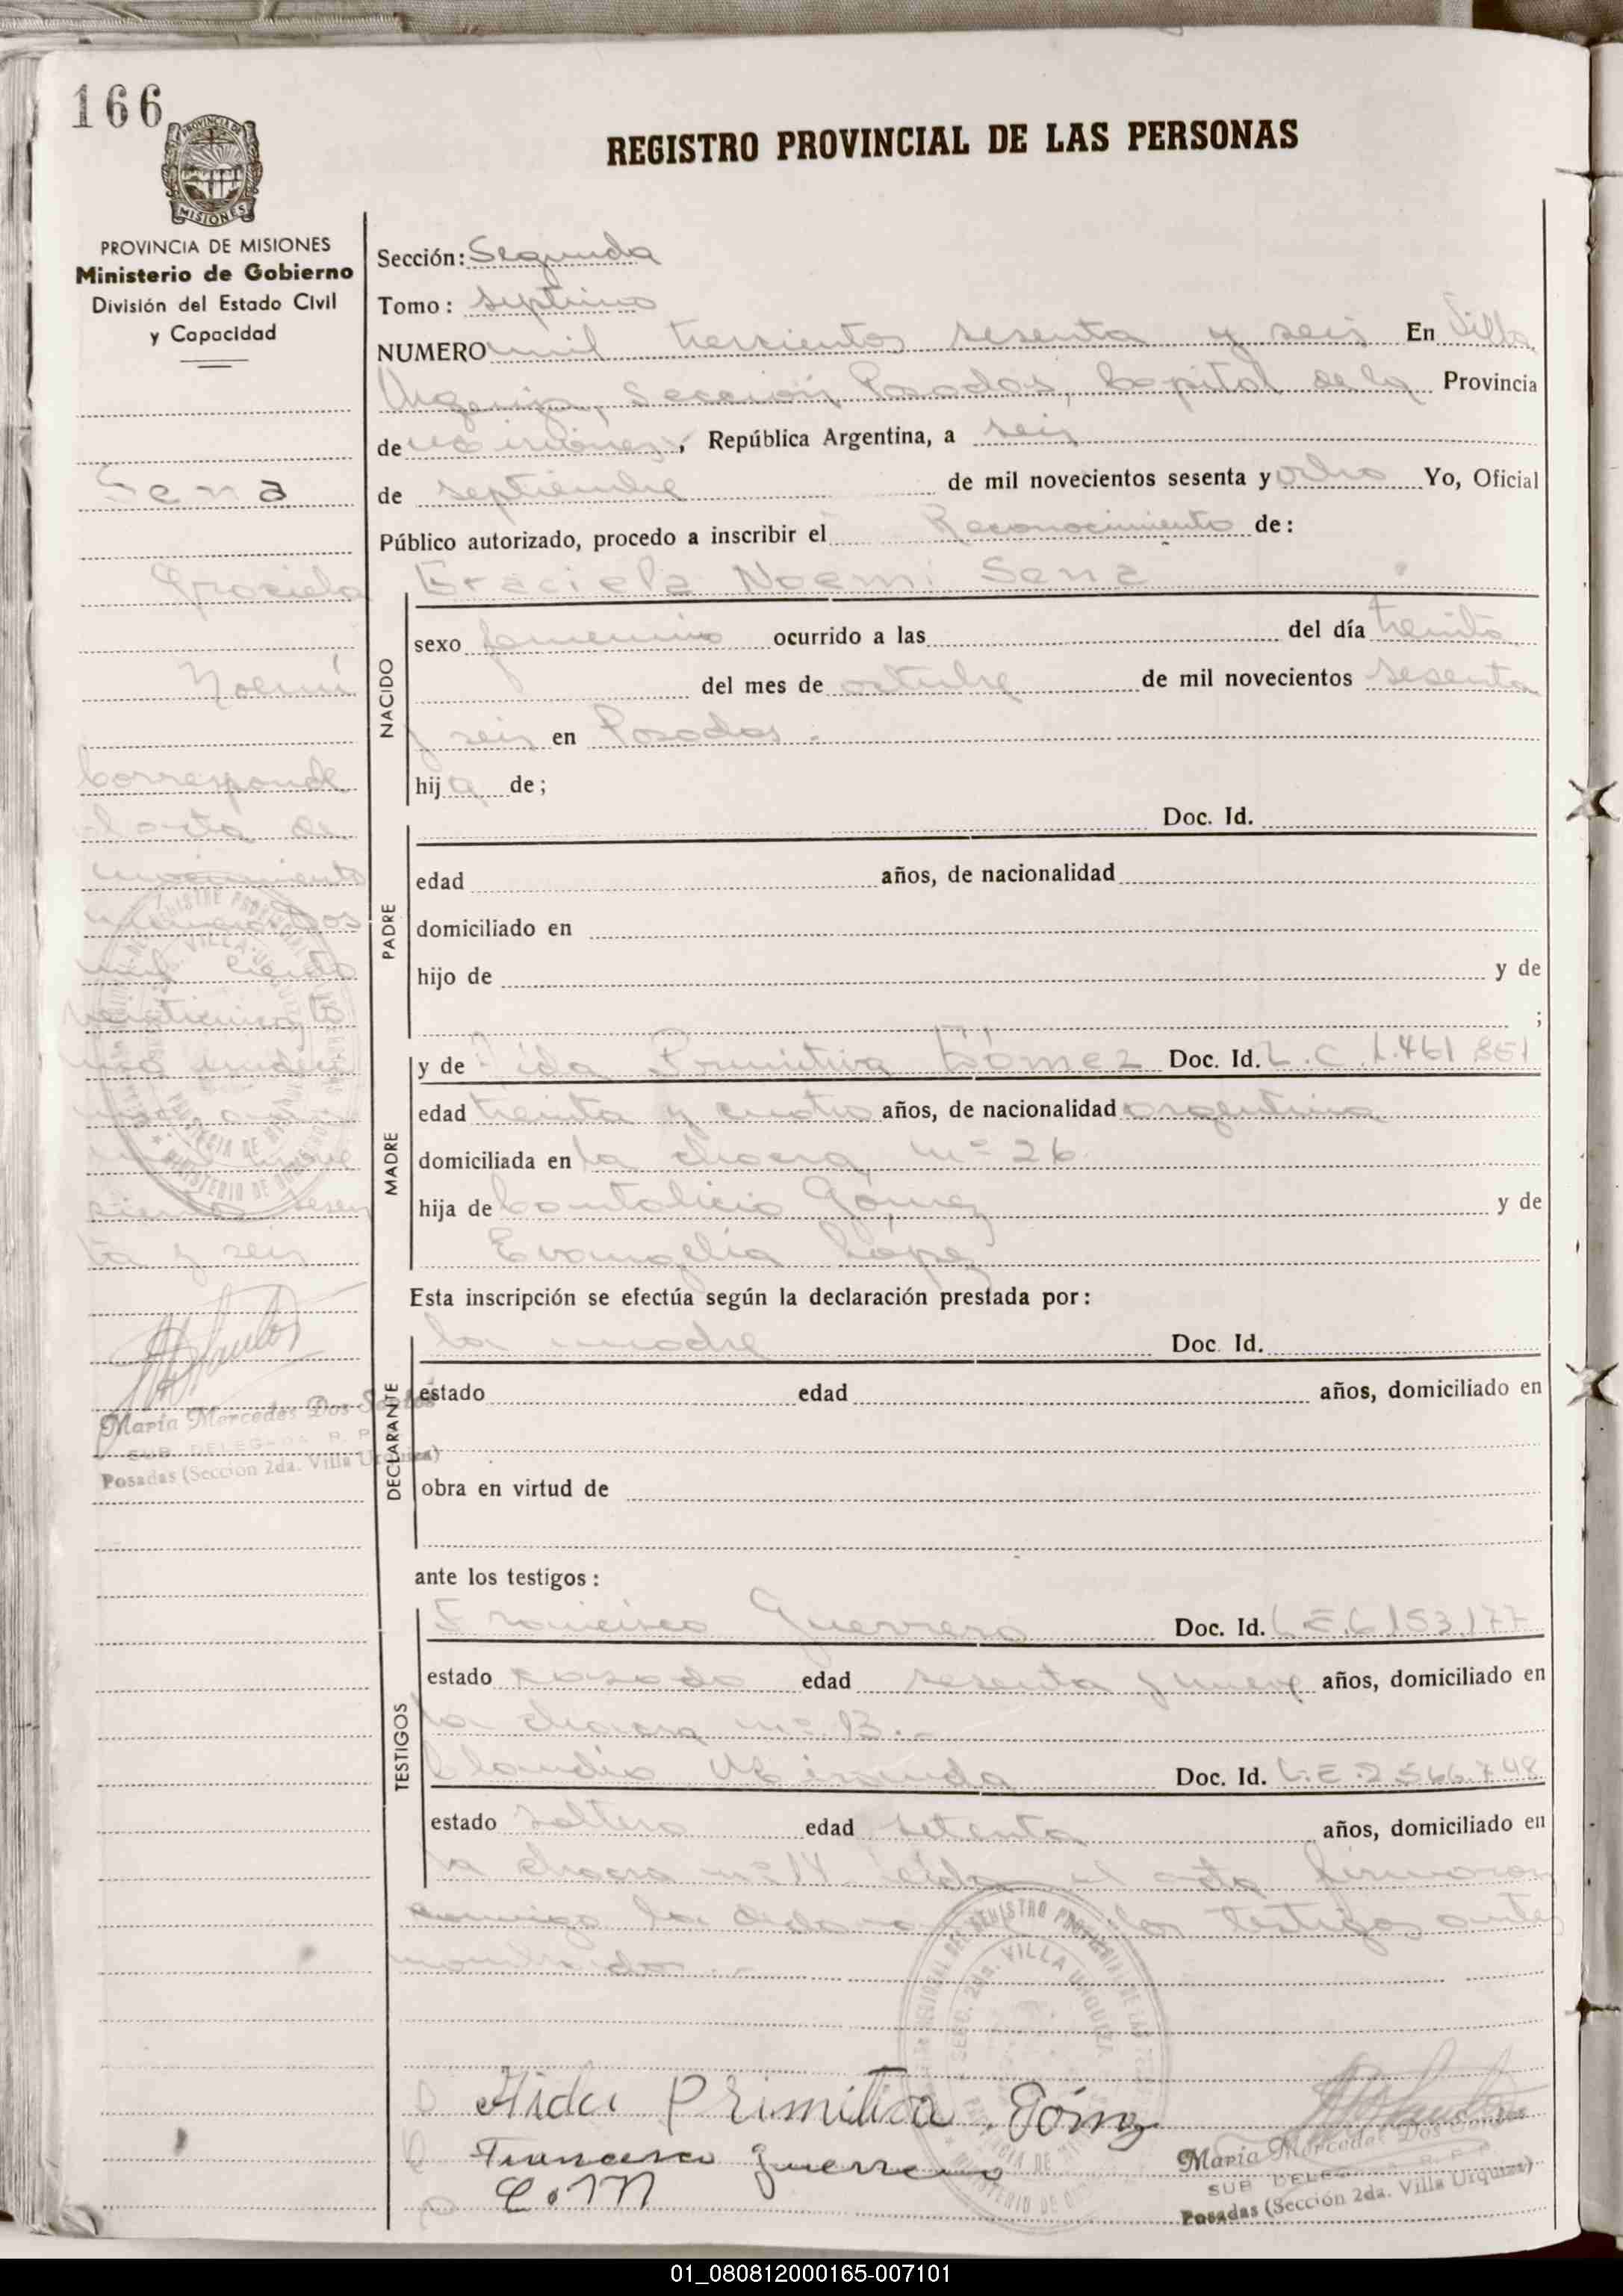 166
PROVINCIA DE MISIONES
REGISTRO PROVINCIAL DE LAS PERSONAS
PROVINCIA DE MISIONES
Ministerio de Gobierno
División del Estado Civil
y Capacidad
Sena
Graciela
Noemí
Corresponde
Acta de
nacimiento
mil ciento
nove
cientos sesen
ta y seis
María Mercedes Dos Santos
SUB DELEGADA R. P.
Posadas (Sección 2da. Villa Urquiza)
Sección: Segunda
Tomo: septimo
NUMERO mil trescientos sesenta y seis En Villa
Urquiza, Sección Posadas, Capital de la Provincia
de Misiones, República Argentina, a seis
de septiembre de mil novecientos sesenta y ocho Yo, Oficial
Público autorizado, procedo a inscribir el Reconocimiento de:
Graciela Noemi Sena
NACIDO
sexo femenino ocurrido a las del día treinta
del mes de octubre de mil novecientos sesenta
y seis en Posadas.-
hija de;
PADRE
Doc. Id.
edad años, de nacionalidad
domiciliado en
hijo de y de
;
MADRE
y de Aida Primitiva Gómez Doc. Id. L.C. 1.461.851
edad treinta y cuatro años, de nacionalidad argentina
domiciliada en la chacra nº 26.
hija de Cantalicio Gómez y de
Evangelia López
Esta inscripción se efectúa según la declaración prestada por:
DECLARANTE
la madre Doc. Id.
estado edad años, domiciliado en
obra en virtud de
ante los testigos:
TESTIGOS
Francisco Guerrero Doc. Id. L.E. 6.153.177
estado casado edad sesenta y nueve años, domiciliado en
la chacra nº 13.-
Claudio Miranda Doc. Id. L.E. 2.566.748
estado soltero edad setenta años, domiciliado en
la chacra nº 14 Leída el acta firmaron
conmigo la declarante los testigos antes
nombrados.-
Aida Primitiva Gómez
Francisco Guerrero
C. M
María Mercedes Dos Santos
SUB DELEGADA R. P.
Posadas (Sección 2da. Villa Urquiza)
01_080812000165-007101